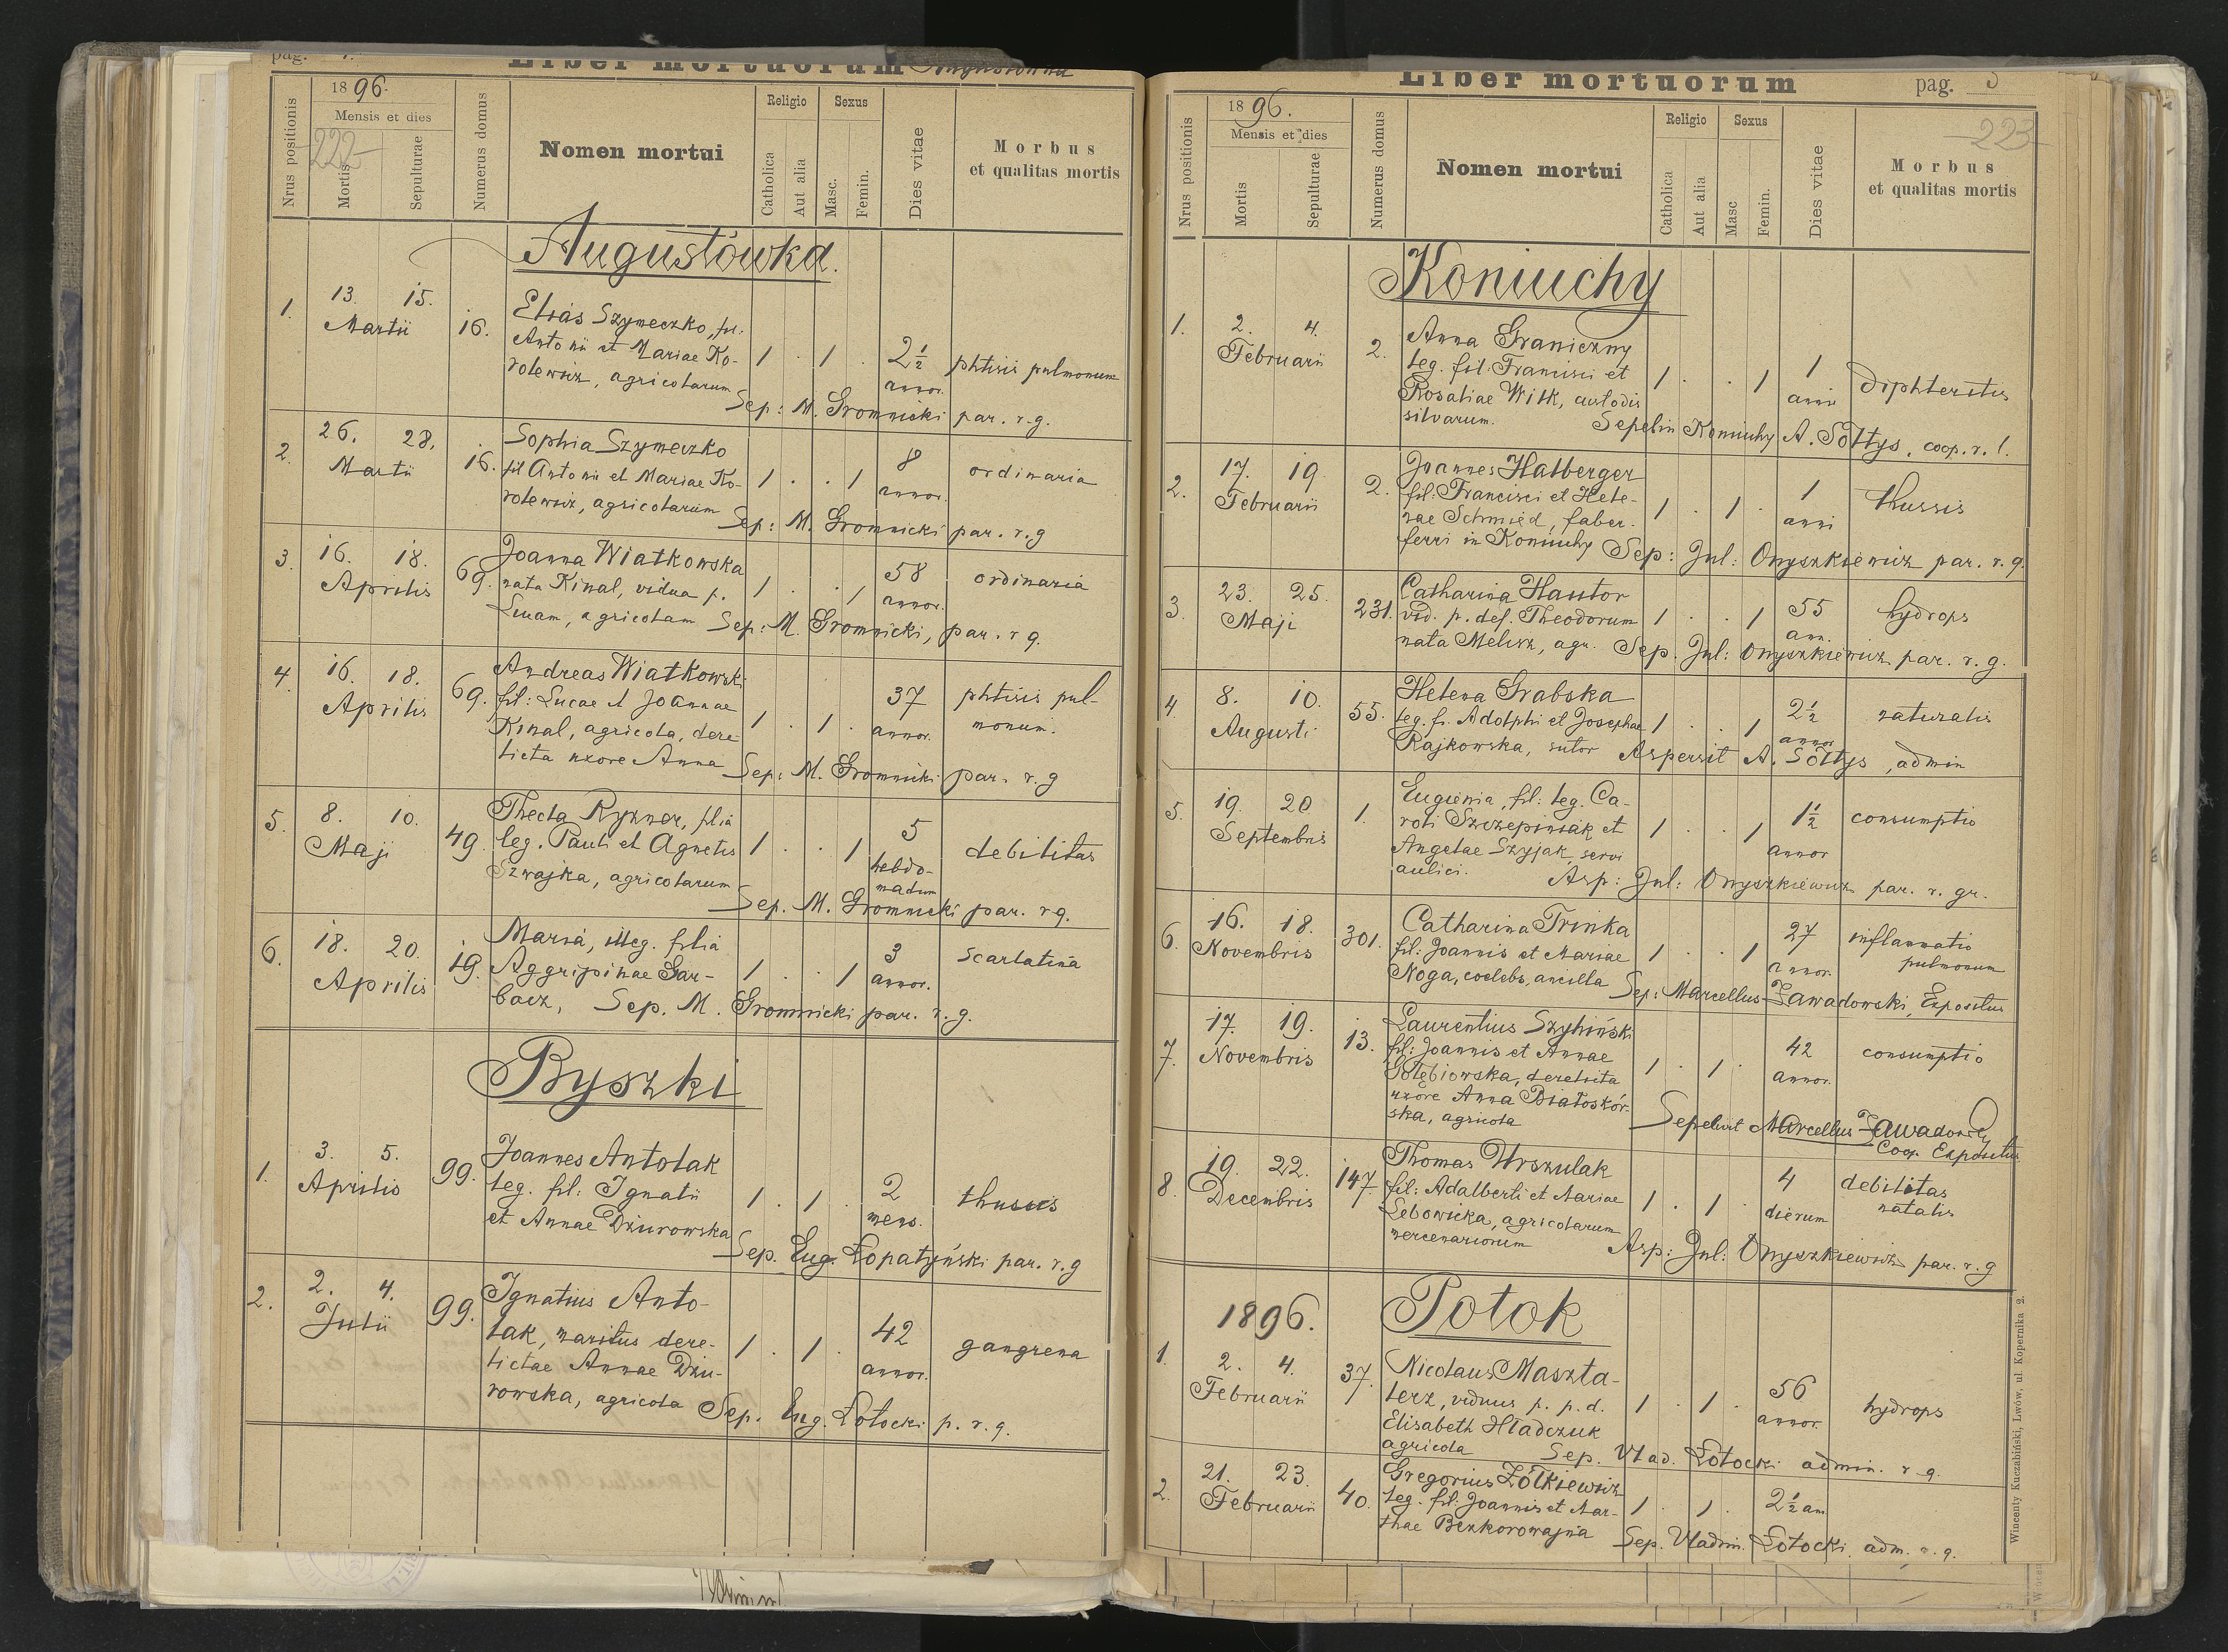 pag.
Liber mortuorum
1896.
Nrus positionis
Mensis et dies
Mortis
Sepulturae
Numerus domus
Nomen mortui
Religio
Catholica
Aut alia
Sexus
Masc.
Femin.
Dies vitae
Morbus
et qualitas mortis
222
Augustówka.
1. 13. 15. 16. Elias Szymeczko, fil.
Martii Antonii et Mariae Ko- 1 . 1 . 2½ phtisis pulmonum
rolewicz, agricolarum annor.
Sep: M. Gromnicki par. r.g.
2. 26. 28. 16. Sophia Szymeczko 8
Martii fil Antonii et Mariae Ko- 1 . . 1 annor. ordinaria
rolewicz, agricolarum
Sep: M. Gromnicki par. r.g
3. 16. 18. 69. Joanna Wiatkowska 58 ordinaria
Aprilis nata Kinal, vidua p. 1 . . 1 annor.
Lucam, agricolam Sep: M. Gromnicki, par. r g.
4. 16. 18. 69. Andreas Wiatkowski
Aprilis fil: Lucae et Joannae 37 phtisis pul-
Kinal, agricola, dere- 1 . 1 . annor. monum.
licta uxore Anna Sep: M. Gromnicki par. r.g
5. 8. 10. 49. Thecla Ryzner, filia 5
Maji leg. Pauli et Agnetis 1 . . 1 hebdo- debilitas
Szwajka, agricolarum madum
Sep. M. Gromnicki par. r g.
6. 18. 20. 19. Maria, illeg. filia 3 scarlatina
Aprilis Aggripinae Gar- 1 . . 1 annor.
bacz, Sep. M. Gromnicki par. r.g.
Byszki
1. 3. 5. 99. Joannes Antolak
Aprilis leg. fil: Ignatii 1 . 1 . 2 thussis
et Annae Dziurowska mens.
Sep. Eug. Łopatyński par. r.g
2. 2. 4. 99. Ignatius Anto-
Julii lak, maritus dere- 1 . 1 . 42 gangrena
lictae Annae Dziu- annor.
rowska, agricola Sep. Eug. Łotocki p. r.g.
Liber mortuorum
pag. 3
1896.
Nrus positionis
Mensis et dies
Mortis
Sepulturae
Numerus domus
Nomen mortui
Religio
Catholica
Aut alia
Sexus
Masc
Femin.
Dies vitae
Morbus
et qualitas mortis
223
Koniuchy
1. 2. 4. 2. Anna Graniczny
Februarii leg. fil: Francisci et 1 . . 1 1 diphteritis
Rosaliae Wilk, custodis anni
silvarum. Sepel in Koniuchy A. Sołtys, coop. r. l.
2. 17. 19. 2. Joannes Halberger
Februarii fil: Francisci et Hele- 1 . 1 . 1 thussis
nae Schmied, faber- anni
ferri in Koniuchy Sep: Jul: Onyszkiewicz par. r.g.
3. 23. 25. 231. Catharina Hautor
Maji vid. p. def. Theodorum 1 . . 1 55 hydrops
nata Melecz, agr. ann. Sep. Jul: Onyszkiewicz par. r. g.
4. 8. 10. 55. Helena Grabska
Augusti leg. fi. Adolphi et Josephae 1 . . 1 2½ naturalis
Rajkowska, sutor annor. Aspersit A. Sołtys, admin
5. 19. 20 1. Eugenia, fil: leg. Ca-
Septembris roli Szczepiniak et 1 . . 1 1½ consumptio
Angelae Szyjak, servi annor
aulici. Asp: Jul: Onyszkiewicz par. r. gr.
6. 16. 18. 301. Catharina Trinka 27 inflammatio
Novembris fil: Joannis et Mariae 1 . . 1 annor. pulmonum
Noga, coelebs, ancilla Sep: Marcellus Zawadowski, Expositus
7. 17. 19. 13. Laurentius Szyhiński
Novembris fil: Joannis et Annae 1 . 1 . 42 consumptio
Gołębiowska, derelicta annor.
uxore Anna Białoskór-
ska, agricola Sepelivit Marcellus Zawadowski
Coop. Expositus
8. 19. 22. 147. Thomas Urszulak
Decembris fil: Adalberti et Mariae 1 . 1 . 4 debilitas
Lebowicka, agricolarum dierum natalis
mercenariorum Asp: Jul: Onyszkiewicz par. r.g
1896. Potok
1. 2. 4. 37. Nicolaus Maszta-
Februarii lerz, viduus p. p.d. 1 . 1 . 56 hydrops
Elisabeth Hładczuk annor.
agricola Sep. Vlad. Łotocki admin. r g.
2. 21. 23. 40. Gregorius Żółkiewicz
Februarii leg. fil: Joannis et Mar- 1 . 1 . 2½ ann.
thae Bezkorowajna Sep. Vladim. Łotocki. adm. r.g.
Wincenty Kuczabiński, Lwów, ul. Kopernika 2.